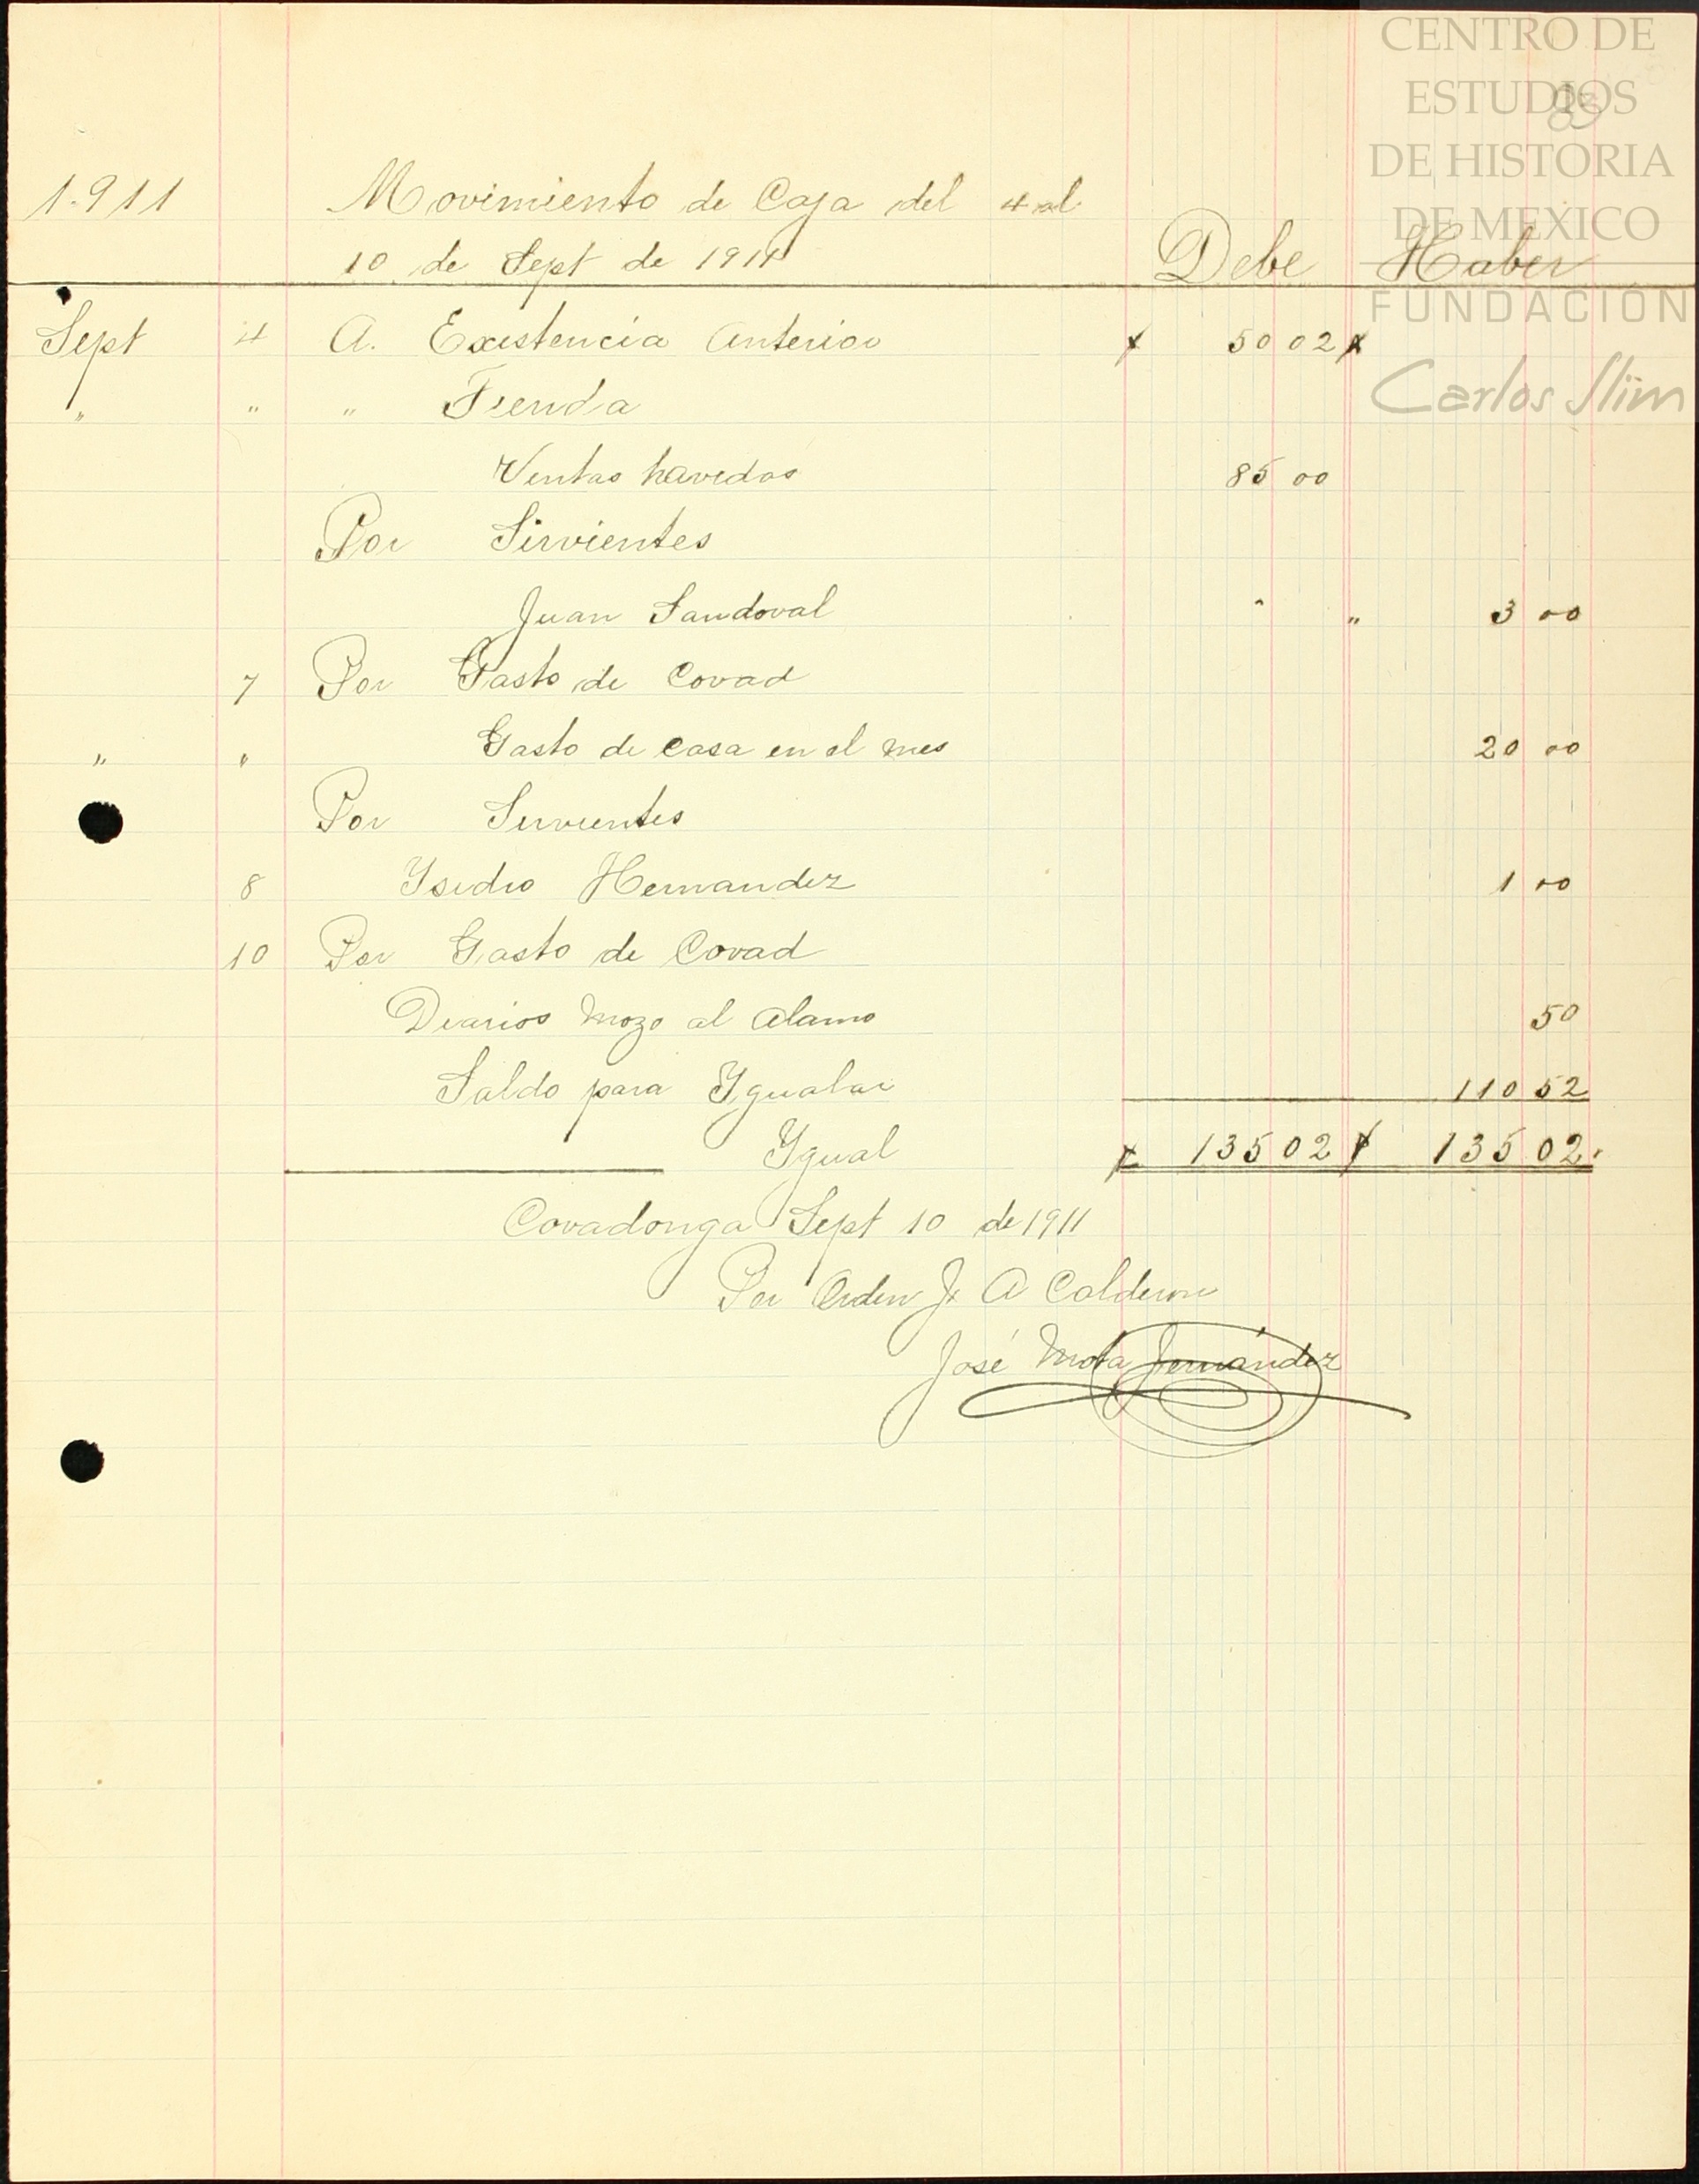 CENTRO DE
ESTUDIOS
DE HISTORIA
DE MEXICO
FUNDACIÓN
Carlos Slim
83
1.911 Movimiento de Caja del 4 al
10 de Sept de 1911 Debe Haber
Sept 4 A. Existencia Anterior $ 50 02 $
" " " Tienda
Ventas havidas 85 00
Por Sirvientes
Juan Sandoval " " 3 00
7 Por Gasto de Covad
" " Gasto de Casa en el mes 20 00
Por Sirvientes
8 Ysidro Hernandez 1 00
10 Por Gasto de Covad
Diarios Mozo al Alamo 50
Saldo para Ygualar 110 52
Ygual $ 135 02 $ 135 02.
Covadonga Sept 10 de 1911
Por Orden J. A Calderon
José Mota Fernández